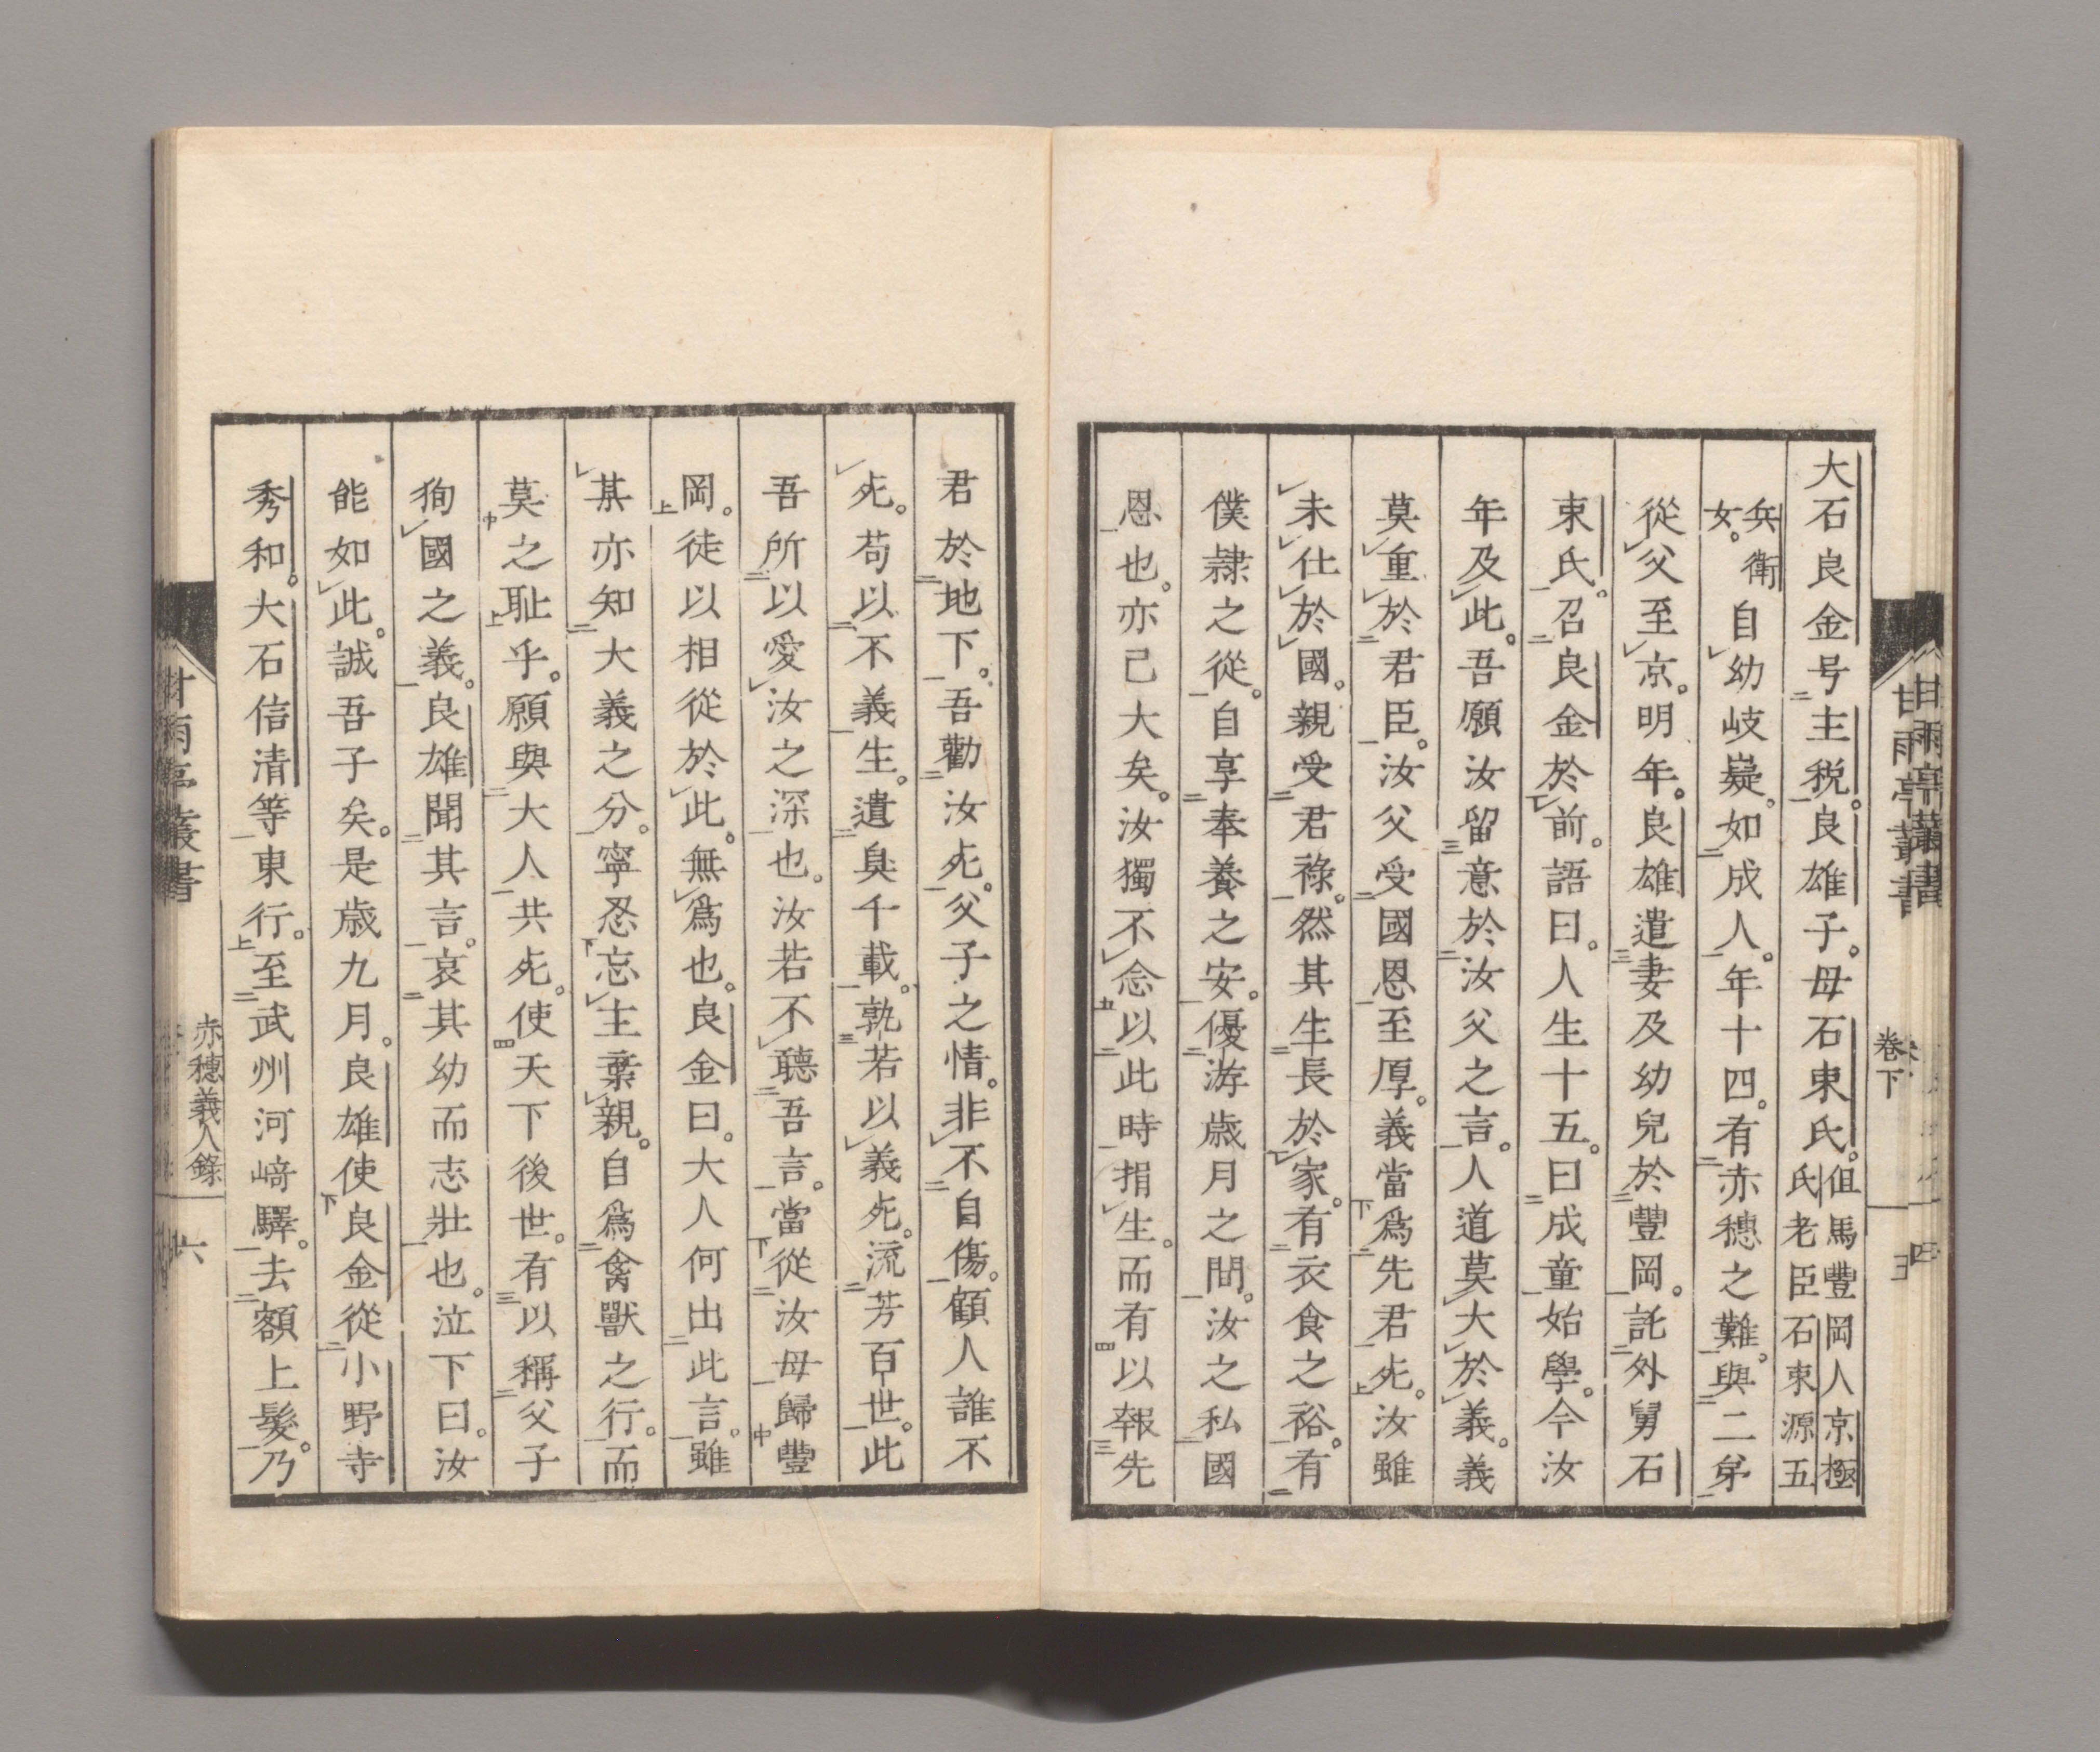 大石良金号主税。良雄子。母石東氏。但馬豐岡人京極氏老臣石東源五
兵衛女。自幼岐嶷。如成人。年十四。有赤穗之難。與二弟
從父至京。明年。良雄遣妻及幼兒於豐岡。託外舅石
東氏。召良金於前。語曰。人生十五。曰成童始學。今汝
年及此。吾願汝留意於汝父之言。人道莫大於義。義
莫重於君臣。汝父受國恩至厚。義當爲先君死。汝雖
未仕於國。親受君祿。然其生長於家。有衣食之裕。有
僕隷之從。自享奉養之安。優游歳月之間。汝之私國
恩也。亦已大矣。汝獨不念以此時捐生。而有以報先
君於地下。吾勸汝死。父子之情。非不自傷。顧人誰不
死。苟以不義生。遺臭千載。孰若以義死。流芳百世。此
吾所以愛汝之深也。汝若不聽吾言。當從汝母歸豐
岡。徒以相從於此。無爲也。良金曰。大人何出此言。雖
某亦知大義之分。寧忍忘主棄親。自爲禽獸之行。而
莫之耻乎。願與大人共死。使天下後世。有以稱父子
狥國之義。良雄聞其言。哀其幼而志壯也。泣下曰。汝
能如此。誠吾子矣。是歳九月。良雄使良金從小野寺
秀和。大石信清等東行。至武州河﨑驛。去額上髮。乃
甘雨亭叢書
卷下
甘雨亭叢書
赤穗義人錄
六